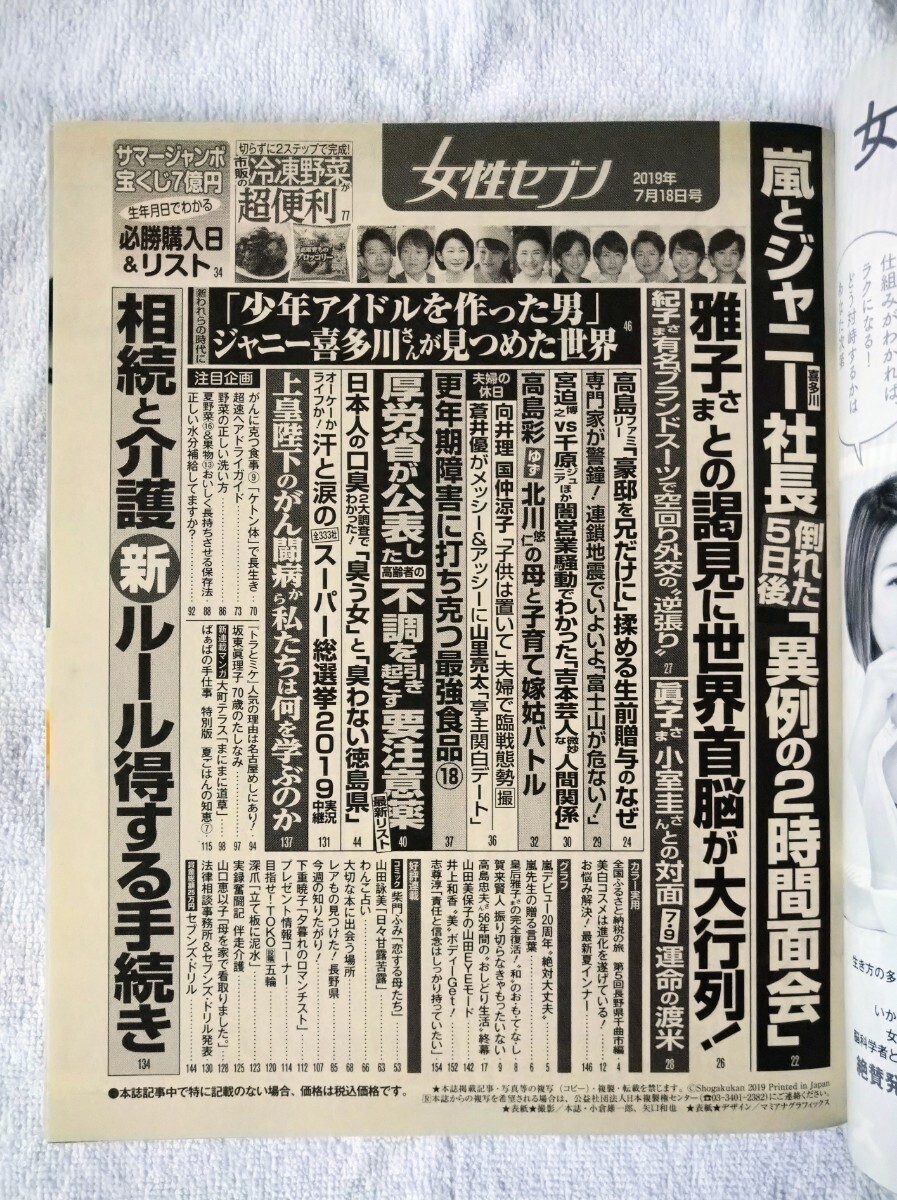 女性セブン
2019年
7月18日号
サマージャンボ
宝くじ7億円
生年月日でわかる
必勝購入日
&リスト 34
切らずに2ステップで完成!
市販の冷凍野菜が
超便利 77
嵐とジャニー喜多川社長 倒れた5日後「異例の2時間面会」 22
雅子さまとの謁見に世界首脳が大行列! 26
紀子さま 有名ブランドスーツで空回り外交の“逆張り” 27
眞子さま 小室圭さんとの対面 7・9 運命の渡米 28
新われらの時代に
「少年アイドルを作った男」
ジャニー喜多川さんが見つめた世界 46
高島ファミリー「豪邸を兄だけに」揉める生前贈与のなぜ 24
専門家が警鐘! 連鎖地震でいよいよ「富士山が危ない!」 29
宮迫博之vs千原ジュニアほか 闇営業騒動でわかった「吉本芸人な微妙人間関係」 30
高島彩 ゆず 北川悠仁の母と子育て嫁姑バトル 32
夫婦の休日
向井理 国仲涼子「子供は置いて」夫婦で臨戦態勢 撮
蒼井優がメッシー&アッシーに山里亮太「亭主関白デート」 36
更年期障害に打ち克つ最強食品⑱ 37
厚労省が公表した 高齢者の不調を引き起こす 要注意薬 最新リスト 40
日本人の口臭 2大調査でわかった!「臭う女」と「臭わない徳島県」 44
オーケーかライフか! 汗と涙の 全333社 スーパー総選挙2019 実況中継 131
上皇陛下のがん闘病から私たちは何を学ぶのか 137
相続と介護 新ルール得する手続き 134
注目企画
がんに克つ食事⑨「ケトン体」で長生き 70
超速ヘアドライガイド 73
野菜の正しい洗い方 86
夏野菜⑯&果物⑬おいしく長持ちさせる保存法 88
正しい水分補給してますか? 92
「トラとミケ」人気の理由は名古屋めしにあり! 94
坂東眞理子 70歳のたしなみ 97
新連載マンガ 大町テラス「まにまに道草」 98
ばぁばの手仕事 特別版 夏ごはんの知恵⑦ 115
カラー実用
全国ふるさと納税の旅 第5回長野県千曲市編 4
美白コスメと進化を遂げている! 12
お悩み解決! 最新夏インナー 146
グラフ
嵐デビュー20周年“絶対大丈夫” 1
嵐先生の贈る言葉 5
皇后雅子さまの完全復活!“和”のお・も・て・な・し 9
賀来賢人 振り切らなきゃもったいない 17
高島忠夫さん 56年間の“おしどり生活”終幕 142
山田美保子の山田EYEモード 142
井上和香 “美”ボディーGet! 152
志尊淳「責任と信念はしっかり持っていたい」 154
好評連載
コミック 柴門ふみ「恋する母たち」 53
山田詠美「日々甘露苦露」 63
わんこ占い 66
大切な本に出会う場所 68
レアもの見つけた! 長野県 85
今週の知りたがり! 107
下重暁子「夕暮れのロマンチスト」 112
プレゼント情報コーナー 114
目指せ! TOKO 五輪 120
深爪「立て板に泥水」 123
実録奮闘記 伴走介護 125
山口恵以子「母を家で看取りました。」 128
法律相談事務所&セブンズ・ドリル発表 130
賞金総額25万円 セブンズ・ドリル 144
●本誌記事中で特に記載のない場合、価格は税込価格です。
★本誌掲載記事・写真等の複写(コピー)・複製・転載を禁じます。©Shogakukan 2019 Printed in Japan
Ⓡ本誌からの複写を希望される場合は、公益社団法人日本複製権センター(☎03-3401-2382)にご連絡ください。
★表紙★撮影/本誌・小倉雄一郎、矢口和也 ★表紙★デザイン/マミアナグラフィックス
女
仕組みがわかれば
ラクになる!
どう対時するかは
生き方の多
いか
女
脳科学者と
絶賛発